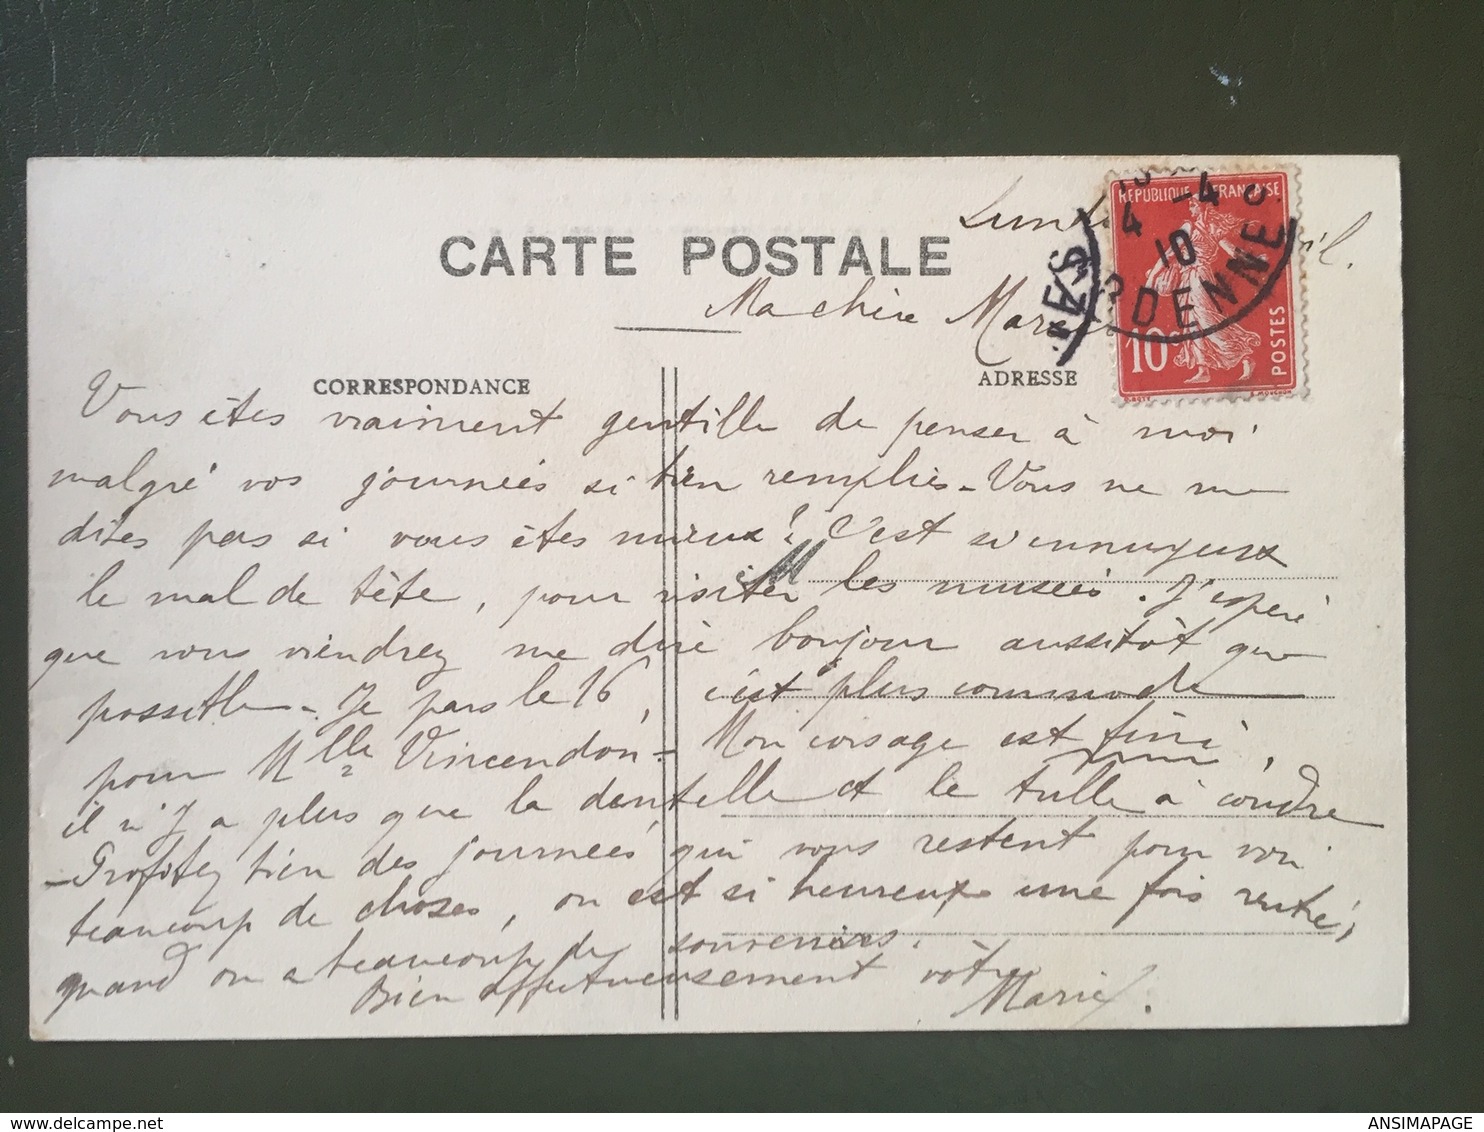 Lun
il.
CARTE POSTALE
Ma chère Mar
RÉPUBLIQUE FRANÇAISE
4 -4
10
DENNE
10
POSTES
CORRESPONDANCE
ADRESSE
Vous êtes vraiment gentille de penser à moi
malgré vos journées si bien remplies - Vous ne me
dites pas si vous êtes mieux ? C'est si ennuyeux
le mal de tête, pour visiter les musées. J'espère
que vous viendrez me dire bonjour aussitôt que
possible - Je pars le 16, c'est plus commode
pour Mlle Vincendon - Mon corsage est fini,
il n'y a plus que la dentelle et le tulle à coudre
- Profitez bien des journées qui vous restent pour voir
beaucoup de choses, on est si heureux une fois rentré,
quand on a beaucoup de souvenirs.
Bien affectueusement votre
Marie.
ANSIMAPAGE